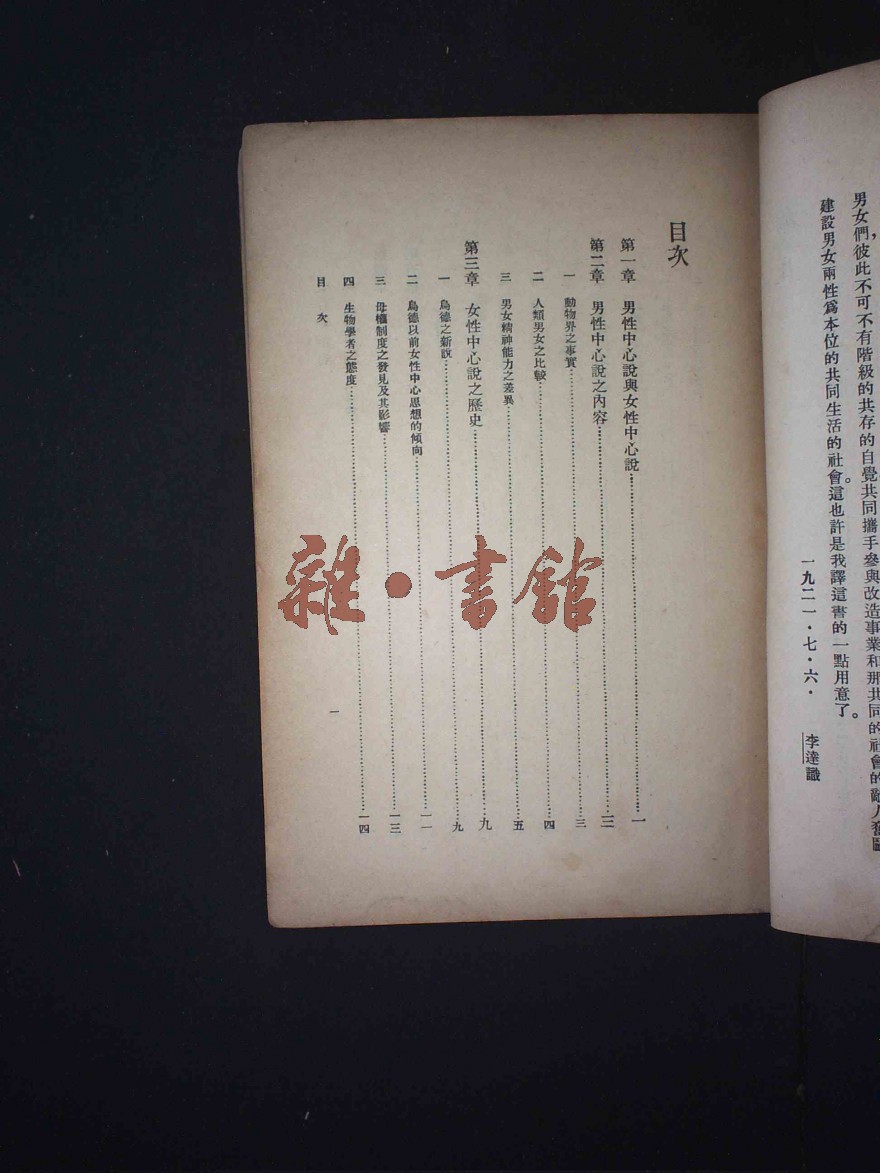 男女們，彼此不可不有階級的共存的自覺共同攜手參與改造事業和那共同的社會的敵人奮鬭
建設男女兩性爲本位的共同生活的社會。這也許是我譯這書的一點用意了。
一九二一・七・六・　李達識
目次
第一章　男性中心說與女性中心說……一
第二章　男性中心說之內容……三
一　動物界之事實……三
二　人類男女之比較……四
三　男女精神能力之差異……五
第三章　女性中心說之歷史……九
一　烏德之新說……九
二　烏德以前女性中心思想的傾向……一一
三　母權制度之發見及其影響……一三
四　生物學者之態度……一四
目次
一
雜・書館